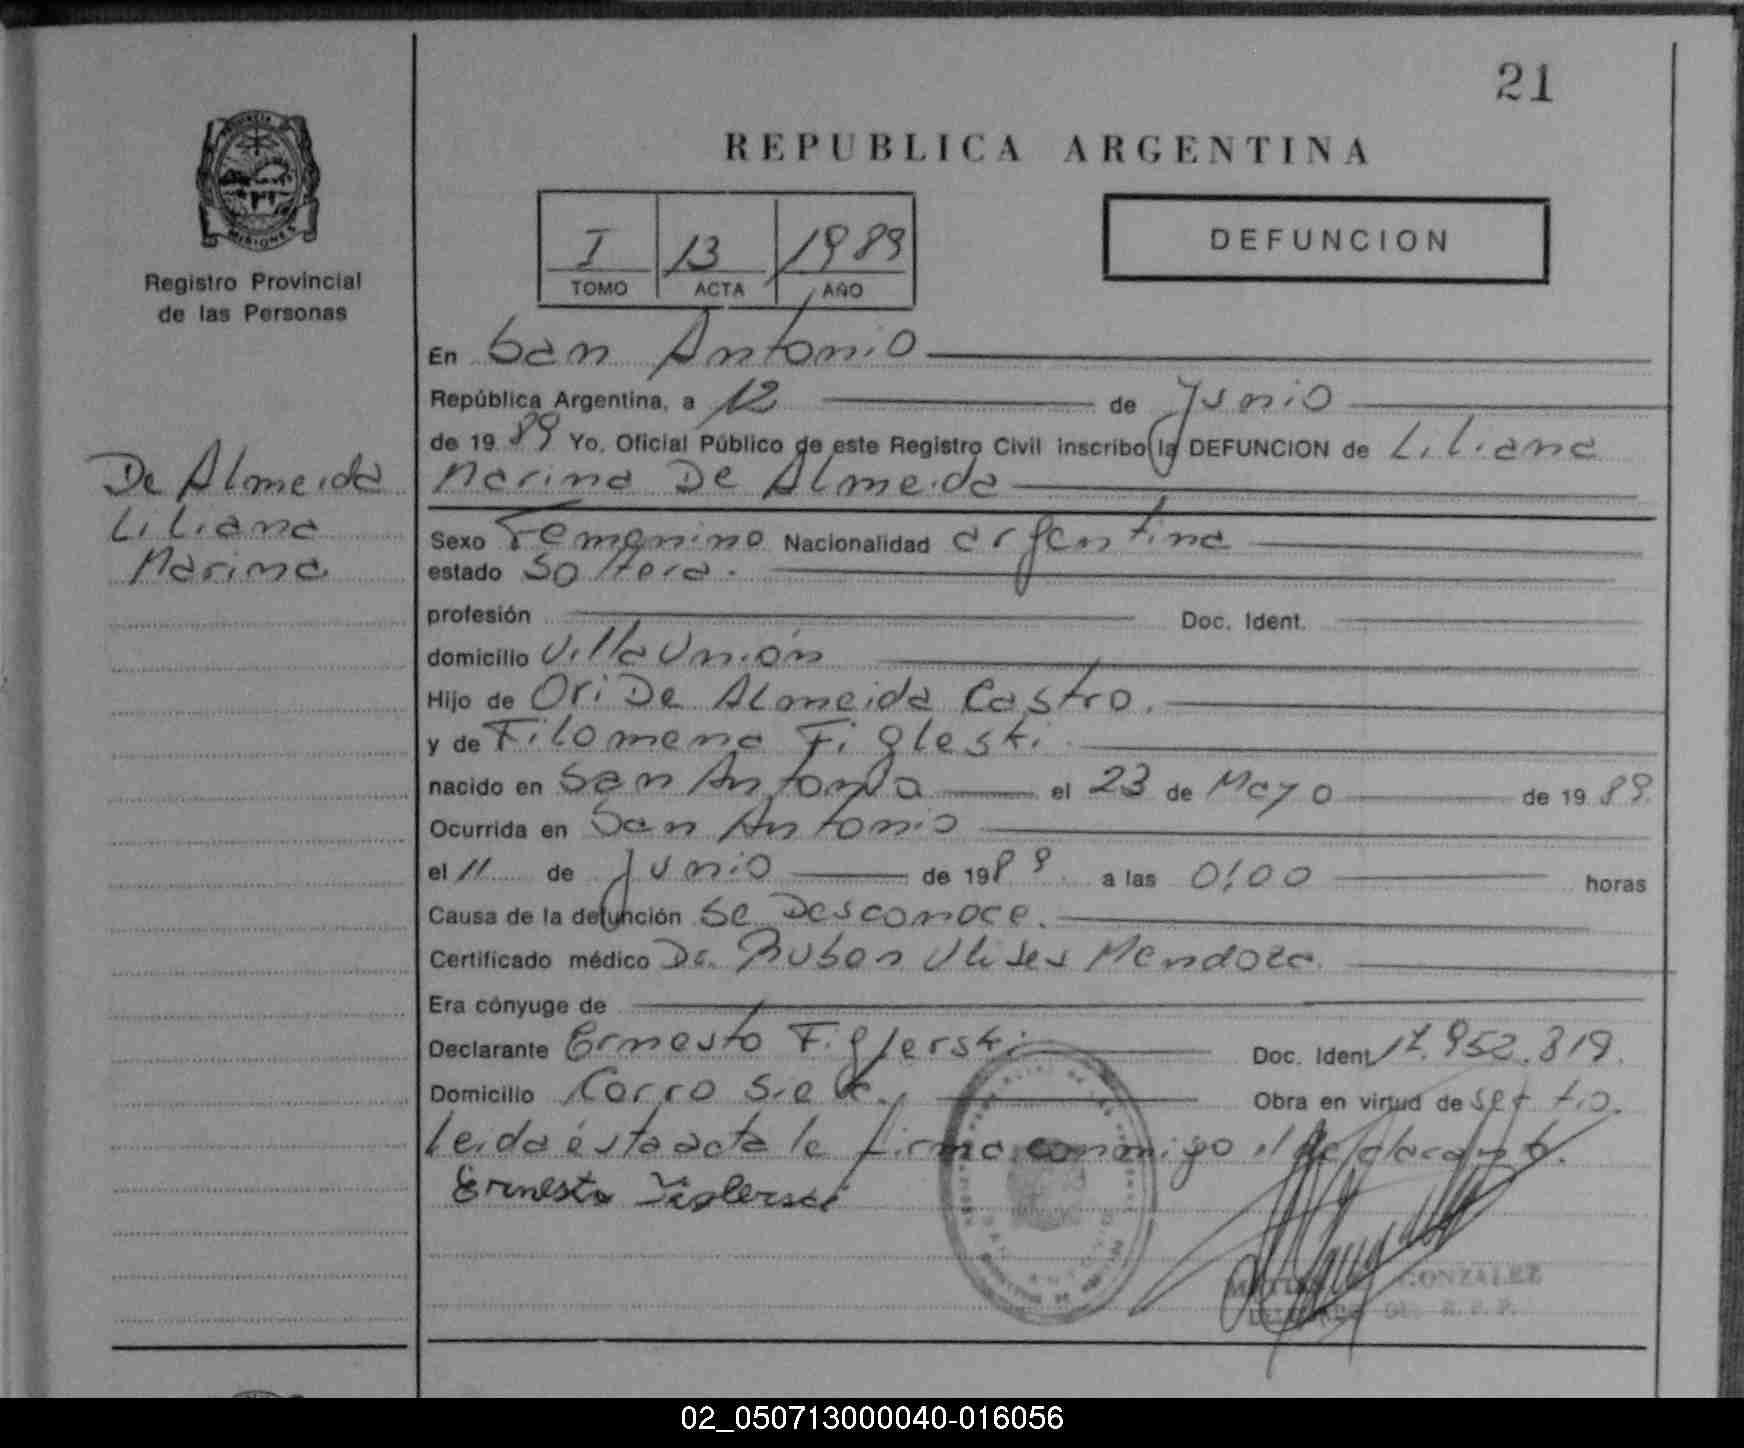 21
PROVINCIA
MISIONES
REPUBLICA ARGENTINA
I 13 1989
TOMO ACTA AÑO
DEFUNCION
Registro Provincial
de las Personas
De Almeida
Liliana
Marina
En San Antonio
República Argentina, a 12 de Junio
de 19 89 Yo, Oficial Público de este Registro Civil inscribo la DEFUNCION de Liliana
Marina De Almeida
Sexo Femenino Nacionalidad argentina
estado Soltera.
profesión Doc. Ident.
domicilio Villa Unión
Hijo de Ori De Almeida Castro.
y de Filomena Figleski.
nacido en San Antonio el 23 de Mayo de 19 89.
Ocurrida en San Antonio
el 11 de Junio de 1989. a las 0:00 horas
Causa de la defunción Se Desconoce.
Certificado médico Dr. Ruben Ulises Mendoza.
Era cónyuge de
Declarante Ernesto Figlerski Doc. Ident 17.952.819.
Domicilio Corro Siete. Obra en virtud de ser tio.
leida ésta acta la firma conmigo el declarante.
Ernesto Figlerski
GONZALEZ
02_050713000040-016056